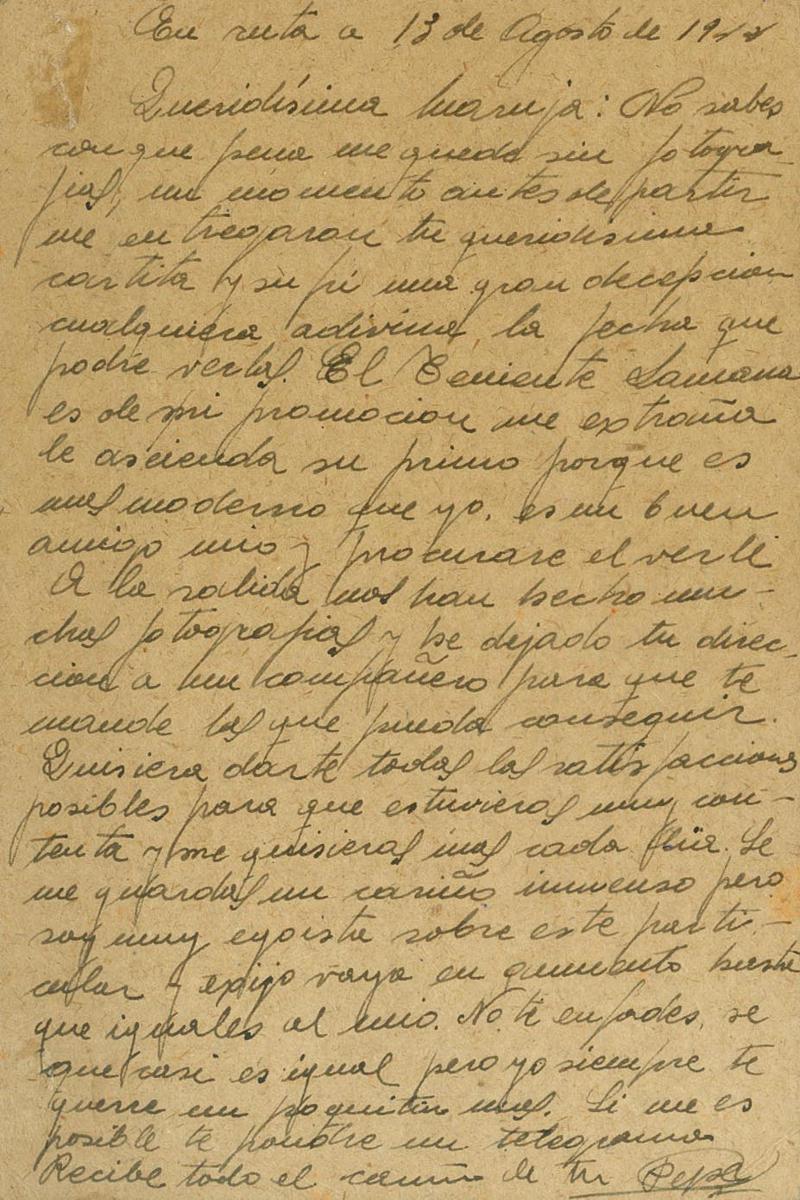 En ruta a 13 de Agosto de 19
Queridísima Maruja: No sabes
con que pena me quedo sin fotogra
fias, un momento antes de partir
me entregaron tu queridisima
cartita y sufri una gran decepcion
cualquiera adivina la fecha que
podre verlas. El Teniente Lamana
es de mi promocion me extraña
le ascienda su primo porque es
mas moderno que yo, es un buen
amigo mio y procurare el verle
A la salida nos han hecho mu-
chas fotografias y he dejado tu direc-
cion a un compañero para que te
mande las que pueda conseguir.
Quisiera darte todas las satisfacciones
posibles para que estuvieras muy con-
tenta y me quisieras mas cada dia. Se
me guardas un cariño inmenso pero
soy muy egoista sobre este parti-
cular y exijo vaya en aumento hasta
que iguales al mio. No te enfades, se
que casi es igual pero yo siempre te
querre un poquitin mas. Si me es
posible te pondre un telegrama
Recibe todo el cariño de tu Pepe